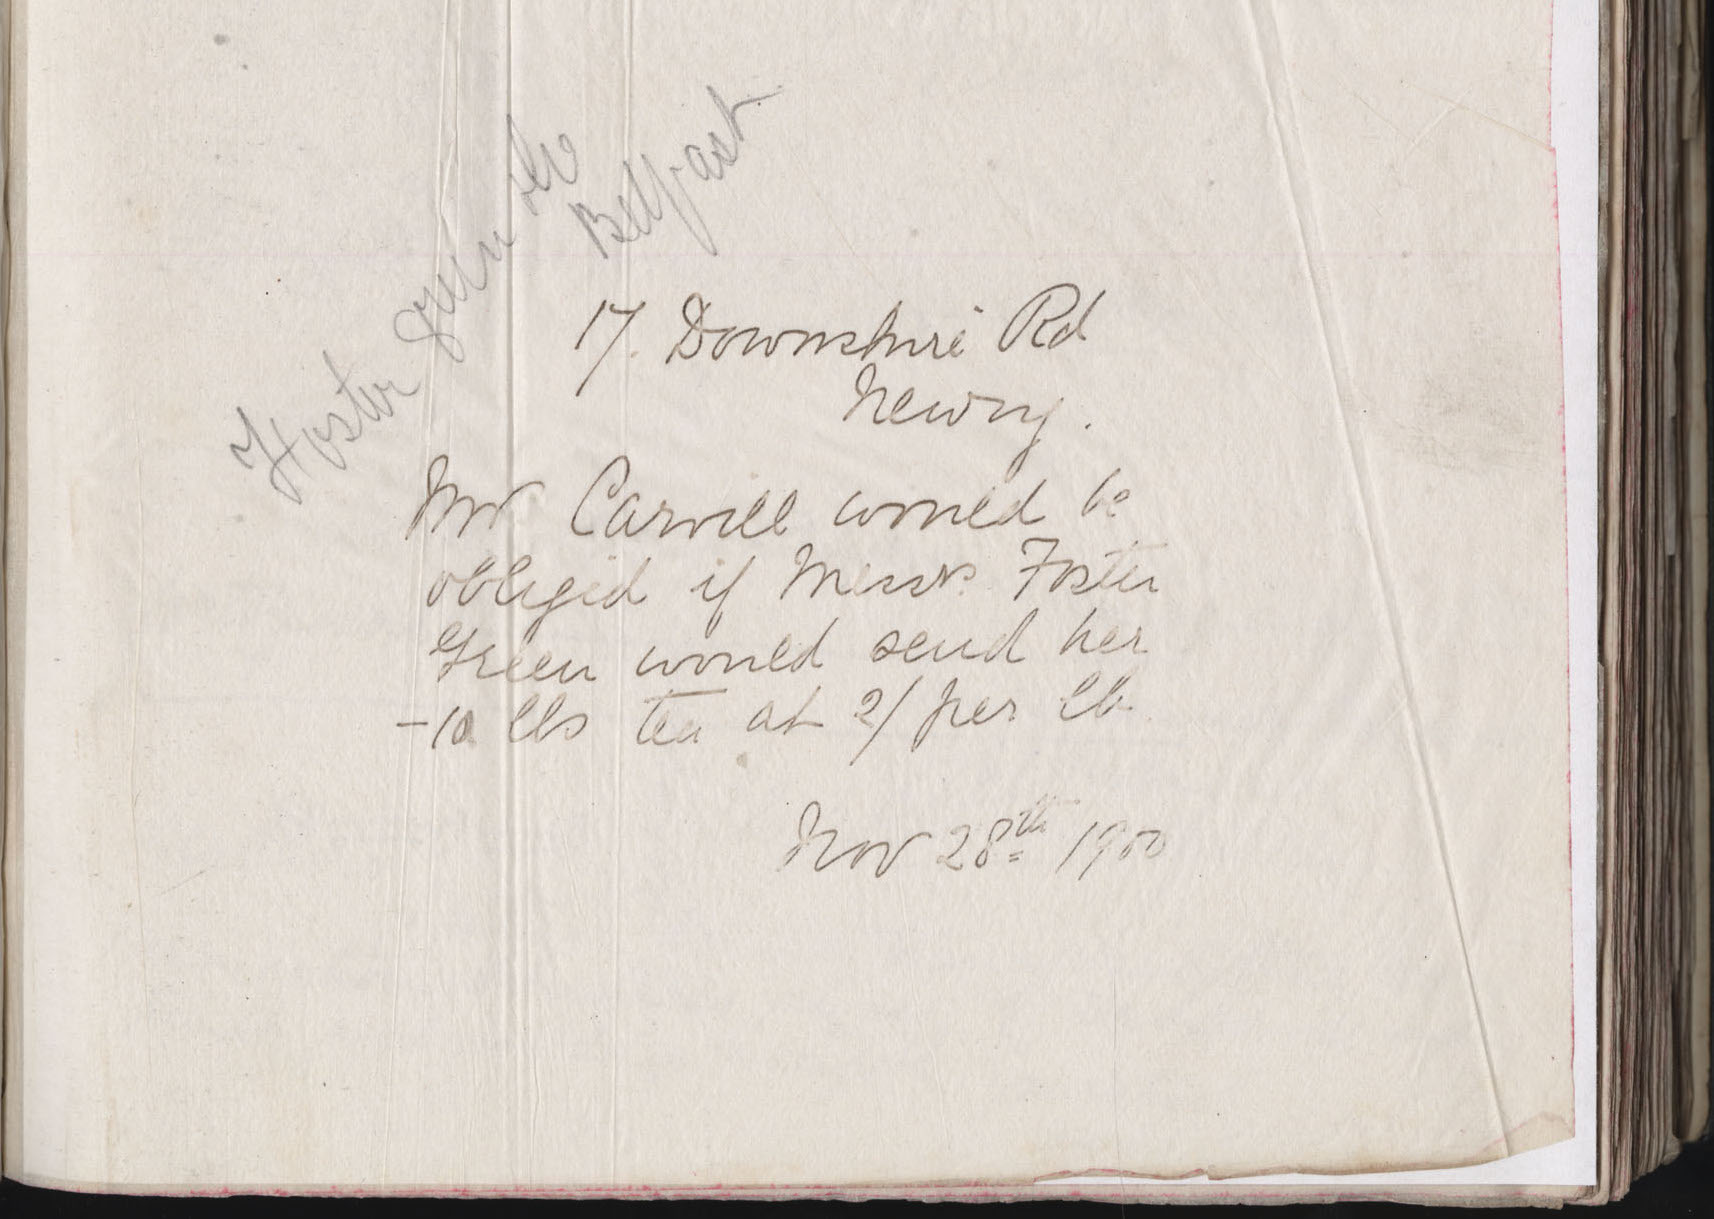 Foster Green & Co
Belfast
17. Downshire Rd
Newry.
Mrs Carvill would be
obliged if Messrs Foster
Green would send her
-10 lbs tea at 2/ per lb.
Nov 28th 1900